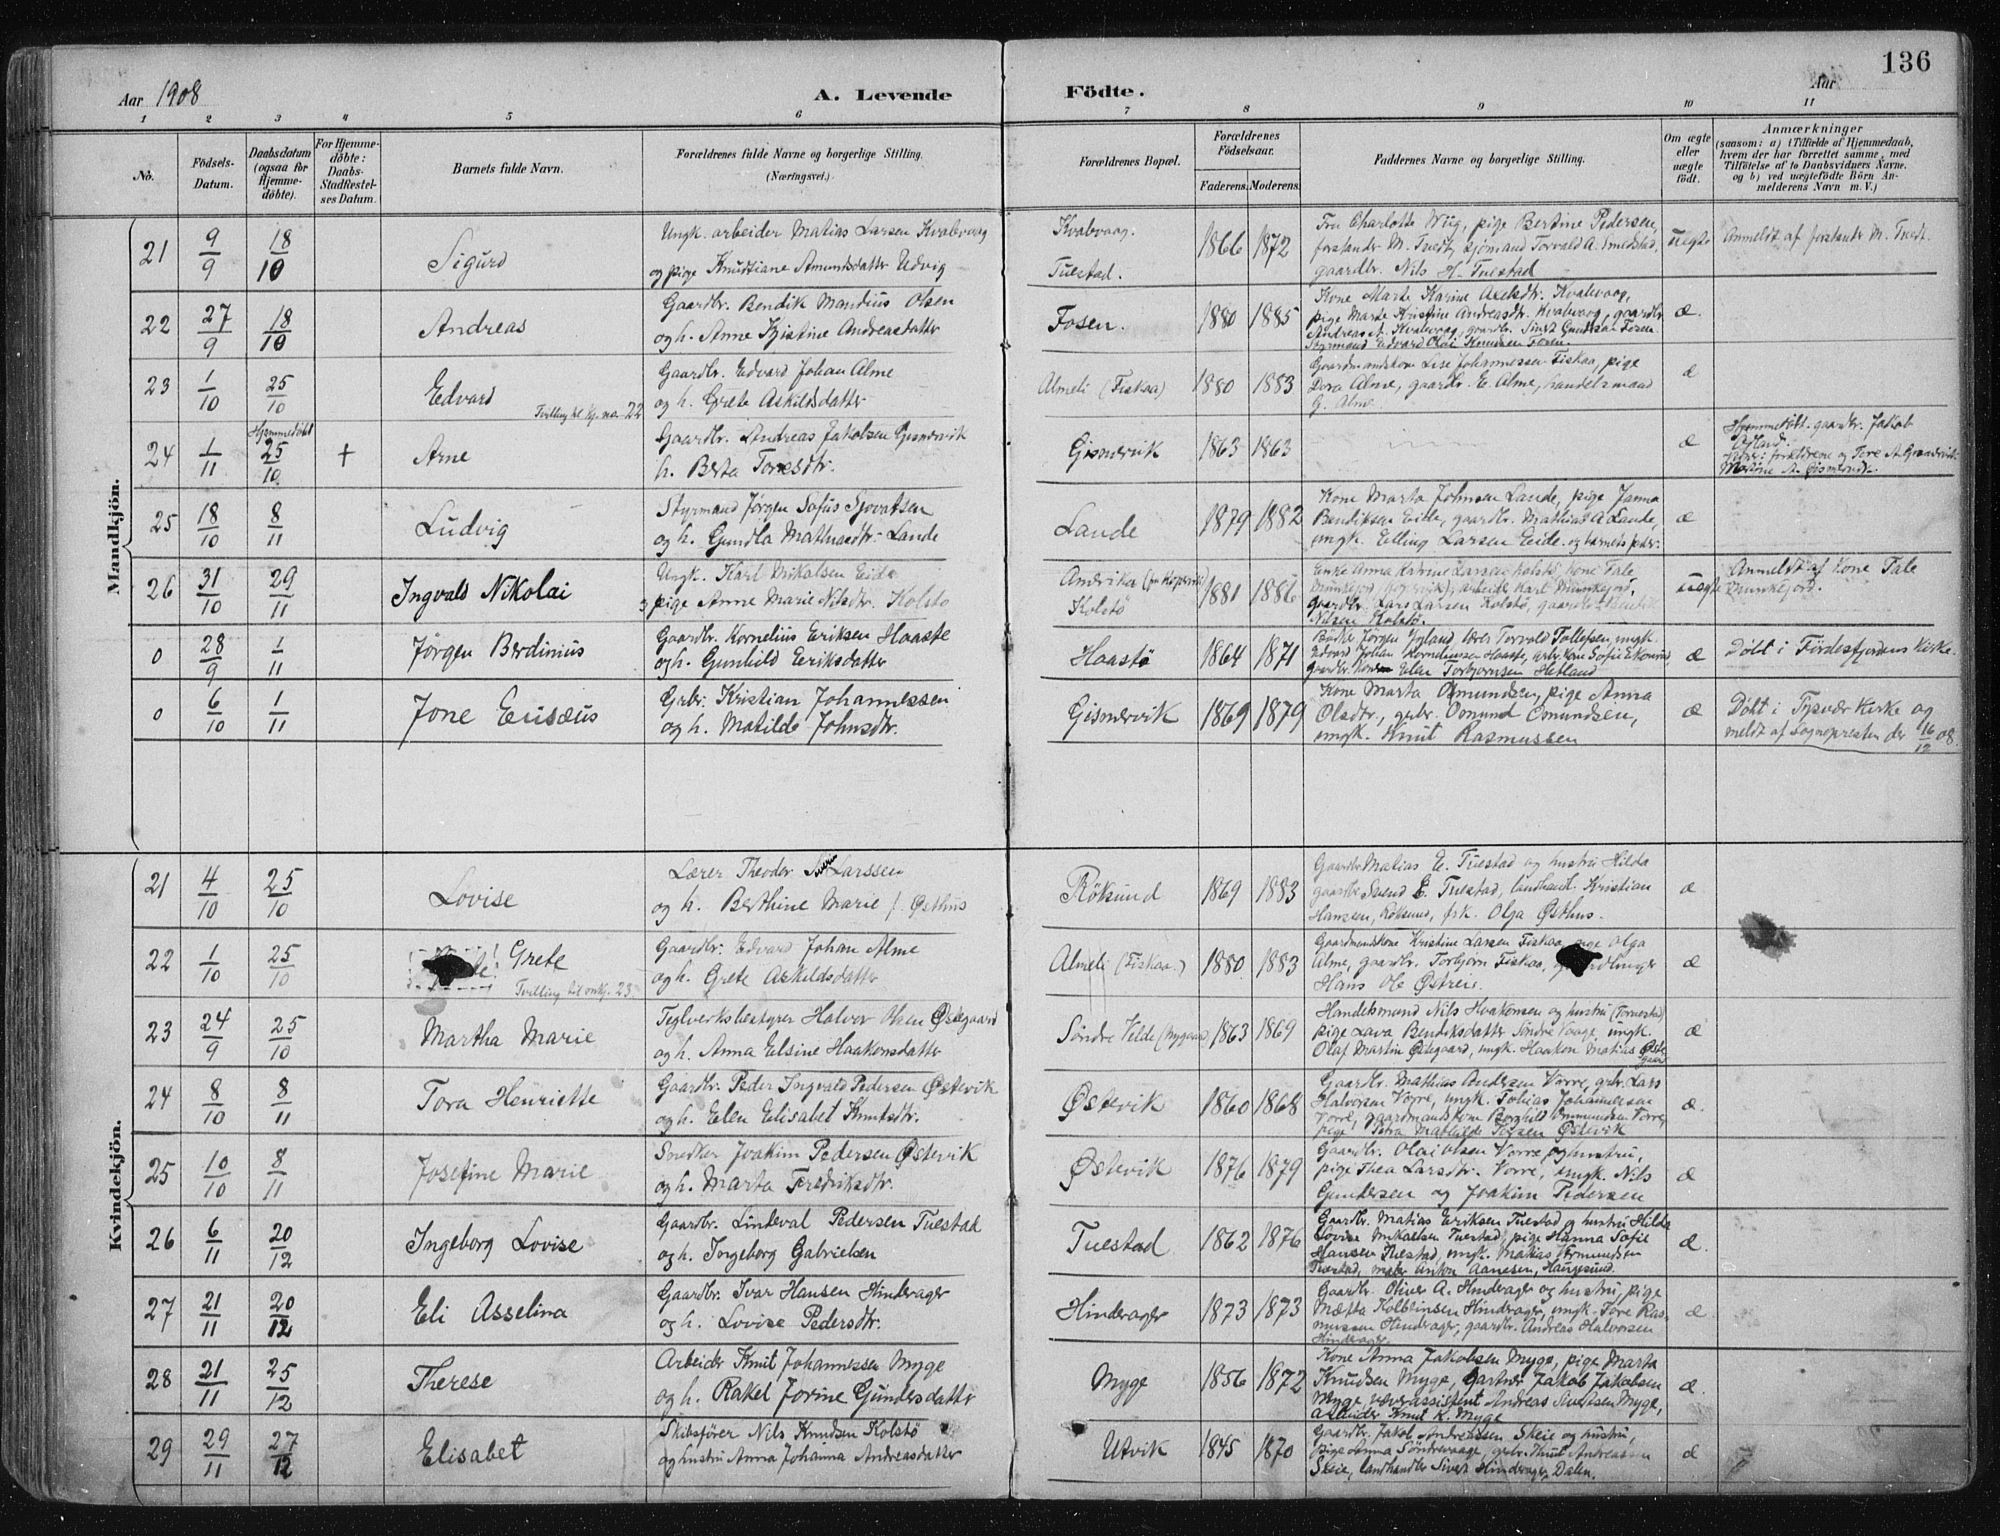 136
Aar 1908
A. Levende
Födte.
Aar
1 2 3 4 5 6 7 8 9 10 11
No.
Födsels-Datum.
Daabsdatum (ogsaa for Hjemmedöbte).
For Hjemmedöbte: Daabs-Stadfæstelses Datum.
Barnets fulde Navn.
Forældrenes fulde Navne og borgerlige Stilling.
(Næringsvei.)
Forældrenes Bopæl.
Forældrenes Födselsaar.
Faderens. Moderens.
Faddernes Navne og borgerlige Stilling.
Om ægte eller uægte födt.
Anmærkninger
(saasom: a) i Tilfælde af Hjemmedaab, hvem der har forrettet samme, med Tilföielse af to Daabsvidners Navne. og b) ved uægtefödte Börn Anmelderens Navn m. V.)
Mandkjön.
21 9/9 18/10 Sigurd
Ungk. arbeider Matias Larsen Kvalevaag
og pige Knudtiane Amundsdatter Udvig
Kvalevaag.
Tuestad.
1866 1872
Fru Charlotte Wiig, pige Bertine Pedersen,
forstander M. Tvedt, sjömand Torvald A. Smedstad,
gaardbr. Nils H. Tuestad
uegte
Anmeldt af forstander M. Tvedt.
22 27/9 18/10 Andreas
Gaardbr. Bendik Mandius Olsen
og h. Anne Kristine Andreasdatter
Fosen.
1880 1885
Kone Marte Karine Axelsdtr. Kvalevaag,
pige Marte Kristine Andreasdr. Kvalevaag, gaardbr.
Andreas A. Kvalevaag, gaardbr. Sivert Fosen
Styrmand Edvard Olai Knudsen Fosen.
æ.
23 1/10 25/10 Edvard
Tvilling til kj. no. 22
Gaardbr. Edvard Johan Alme
og h. Grete Askildsdatter
Almeli (Fiskaa)
1880 1883
Gaardmandskone Lise Johannessen Fiskaa, pige
Dora Alme, gaardbr. E. Alme, handelsmand
G. Alme.
æ
24 1/11 Hjemmedöbt 25/10 + Arne
Gaardbr. Andreas Jakobsen Gismervik
h. Berta Toresdtr.
Gismervik
1863 1863
æ
Hjemmedöbt. gaardbr. Jakob
forældrene og Tore A. Gismervik
25 18/10 8/11 Ludvig
Styrmand Jørgen Sofus Sjovatsen
og h. Gundla Mathiasdtr. Lande
Lande
1879 1882
Kone Marta Johnsen Lande, pige Janna
Bendiksen Eide, gaardbr. Mathias A Lande,
ungk. Elling Larsen Eide og barnets fader.
æ
26 31/10 29/11 Ingvald Nikolai
Ungk. Karl Mikalsen Eide
pige Anne Marie Nilsdtr. Kolstø
Kolstö
1881 1886
Enke Anna Katrine Larsen Kolstö, kone Tale
Munkejord, arbeider Karl Munkejord,
gaardbr. Lars Larsen Kolstö, gaardbr.
Nilsen Kolstø.
uegte
Anmeldt af kone Tale
Munkejord.
0 28/9 1/11 Jørgen Berdinius
Gaardbr. Kornelius Eriksen Haaste
og h. Gunhild Eriksdatter
Haastö
1864 1871
Jørgen lærer Torvald Tollefsen, ungk.
Edvard Johan Korneliussen Haaste,
gaardbr. Elen Torbjørnsen Hetland
æ
Döbt i Fördesfjordens Kirke.
0 6/10 1/11 Jone Eliseus
Grbr. Kristian Johannessen
og h. Matilde Johnsdtr.
Gismervik
1869 1879
Kone Marta Osmundsen, pige Anna
Olsdtr., grbr. Osmund Osmundsen,
ungk. Knut Rasmussen
æ
Döbt i Tysvær Kirke og
meldt af Sognepresten der 16/12 08.
Kvindekjön.
21 4/10 25/10 Lovise
Lærer Theodor Larssen
og h. Berthine Marie f. Østhus
Röksund
1869 1883
Gaardbr. Matias E. Tuestad og hustru Hilda
gaardbr. Svend E. Tuestad, landhand. Kristian
Hansen, Röksund, frk. Olga Østhus.
æ
22 1/10 25/10 Grete
Tvilling til mkj. 23.
Gaardbr. Edvard Johan Alme
og h. Grete Askildsdatter
Almeli (Fiskaa.)
1880 1883
Gaardmandskone Kristine Larsen Fiskaa, pige Olga
Alme, gaardbr. Torbjørn Fiskaa,
Hans Ole Østrem
æ
23 24/9 25/10 Martha Marie
Teglverksbestyrer Halvor Olsen Østegaard
og h. Anna Elsine Haakonsdatter
Søndre Velde (Nygaard)
1863 1869
Handelsmand Nils Haakonsen og hustru (Tornestad)
pige Lava Bendiksdatter Söndre Vaage, ungk.
Olaf Martin Østegaard, ungk. Haakon Matias Østegaard
æ
24 8/10 8/11 Tora Henriette
Gaardbr. Peder Ingvald Pedersen Østevik
og h. Elen Elisabet Knutsdtr.
Østevik
1860 1868
Gaardbr. Mathias Andersen Vorre, grbr. Lars
Halvorsen Vorre, ungk. Tobias Johannessen
Vorre, gaardmandskone Berghild Ommundsen Vorre,
pige Petra Mathilde Østevik
æ.
25 10/10 8/11 Josefine Marie
Snedker Joakim Pedersen Østevik
og h. Marta Fredriksdtr.
Østevik
1876 1879
Gaardbr. Olai Olsen Vorre og hustru,
pige Thea Larsdtr. Vorre, ungk. Nils
Gundersen og Joakim Pedersen
æ
26 6/11 20/12 Ingeborg Lovise
Gaardbr. Lindeval Pedersen Tuestad
og h. Ingeborg Gabrielsen
Tuestad
1862 1876
Gaardbr. Matias Eriksen Tuestad og hustru Hilda
Lovise Mikaelsen Tuestad, pige Hanna Sofie
Hansen Tuestad, ungk. Matias
Tuestad, maler Anton Aanesen, Haugesund.
æ.
27 21/11 20/12 Eli Asselina
Gaardbr. Ivar Hansen Hinderager
og h. Lovise Pedersdtr.
Hinderager
1873 1873
Gaardbr. Oliver A. Hinderager og hustru, pige
Kolbeinsen Hinderager, ungk. Tore Rasmussen Hinderager, gaardbr. Andreas Halvorsen
Hinderager.
æ
28 21/11 25/12 Therese
Arbeider Knut Johannessen Myge
og h. Rakel Jorine Gundesdatter
Myge
1856 1872
Kone Anna Jakobsen Myge, pige Marta
Knudsen Myge, gartner Jakob Jakobsen
Myge, Andreas Myge,
arbeider Knut K. Myge
æ.
29 29/11 27/12 Elisabet
Skibsfører Nils Knudsen Kolstø
og hustru Anna Johanna Andreasdatter
Utvik
1845 1870
Gaardbr. Jakob Andreassen Skeie og hustru,
pige Anna Söndrevaage, grbr. Knut Andreassen
Skeie, landhandler Sivert Hinderager, Dalen.
æ